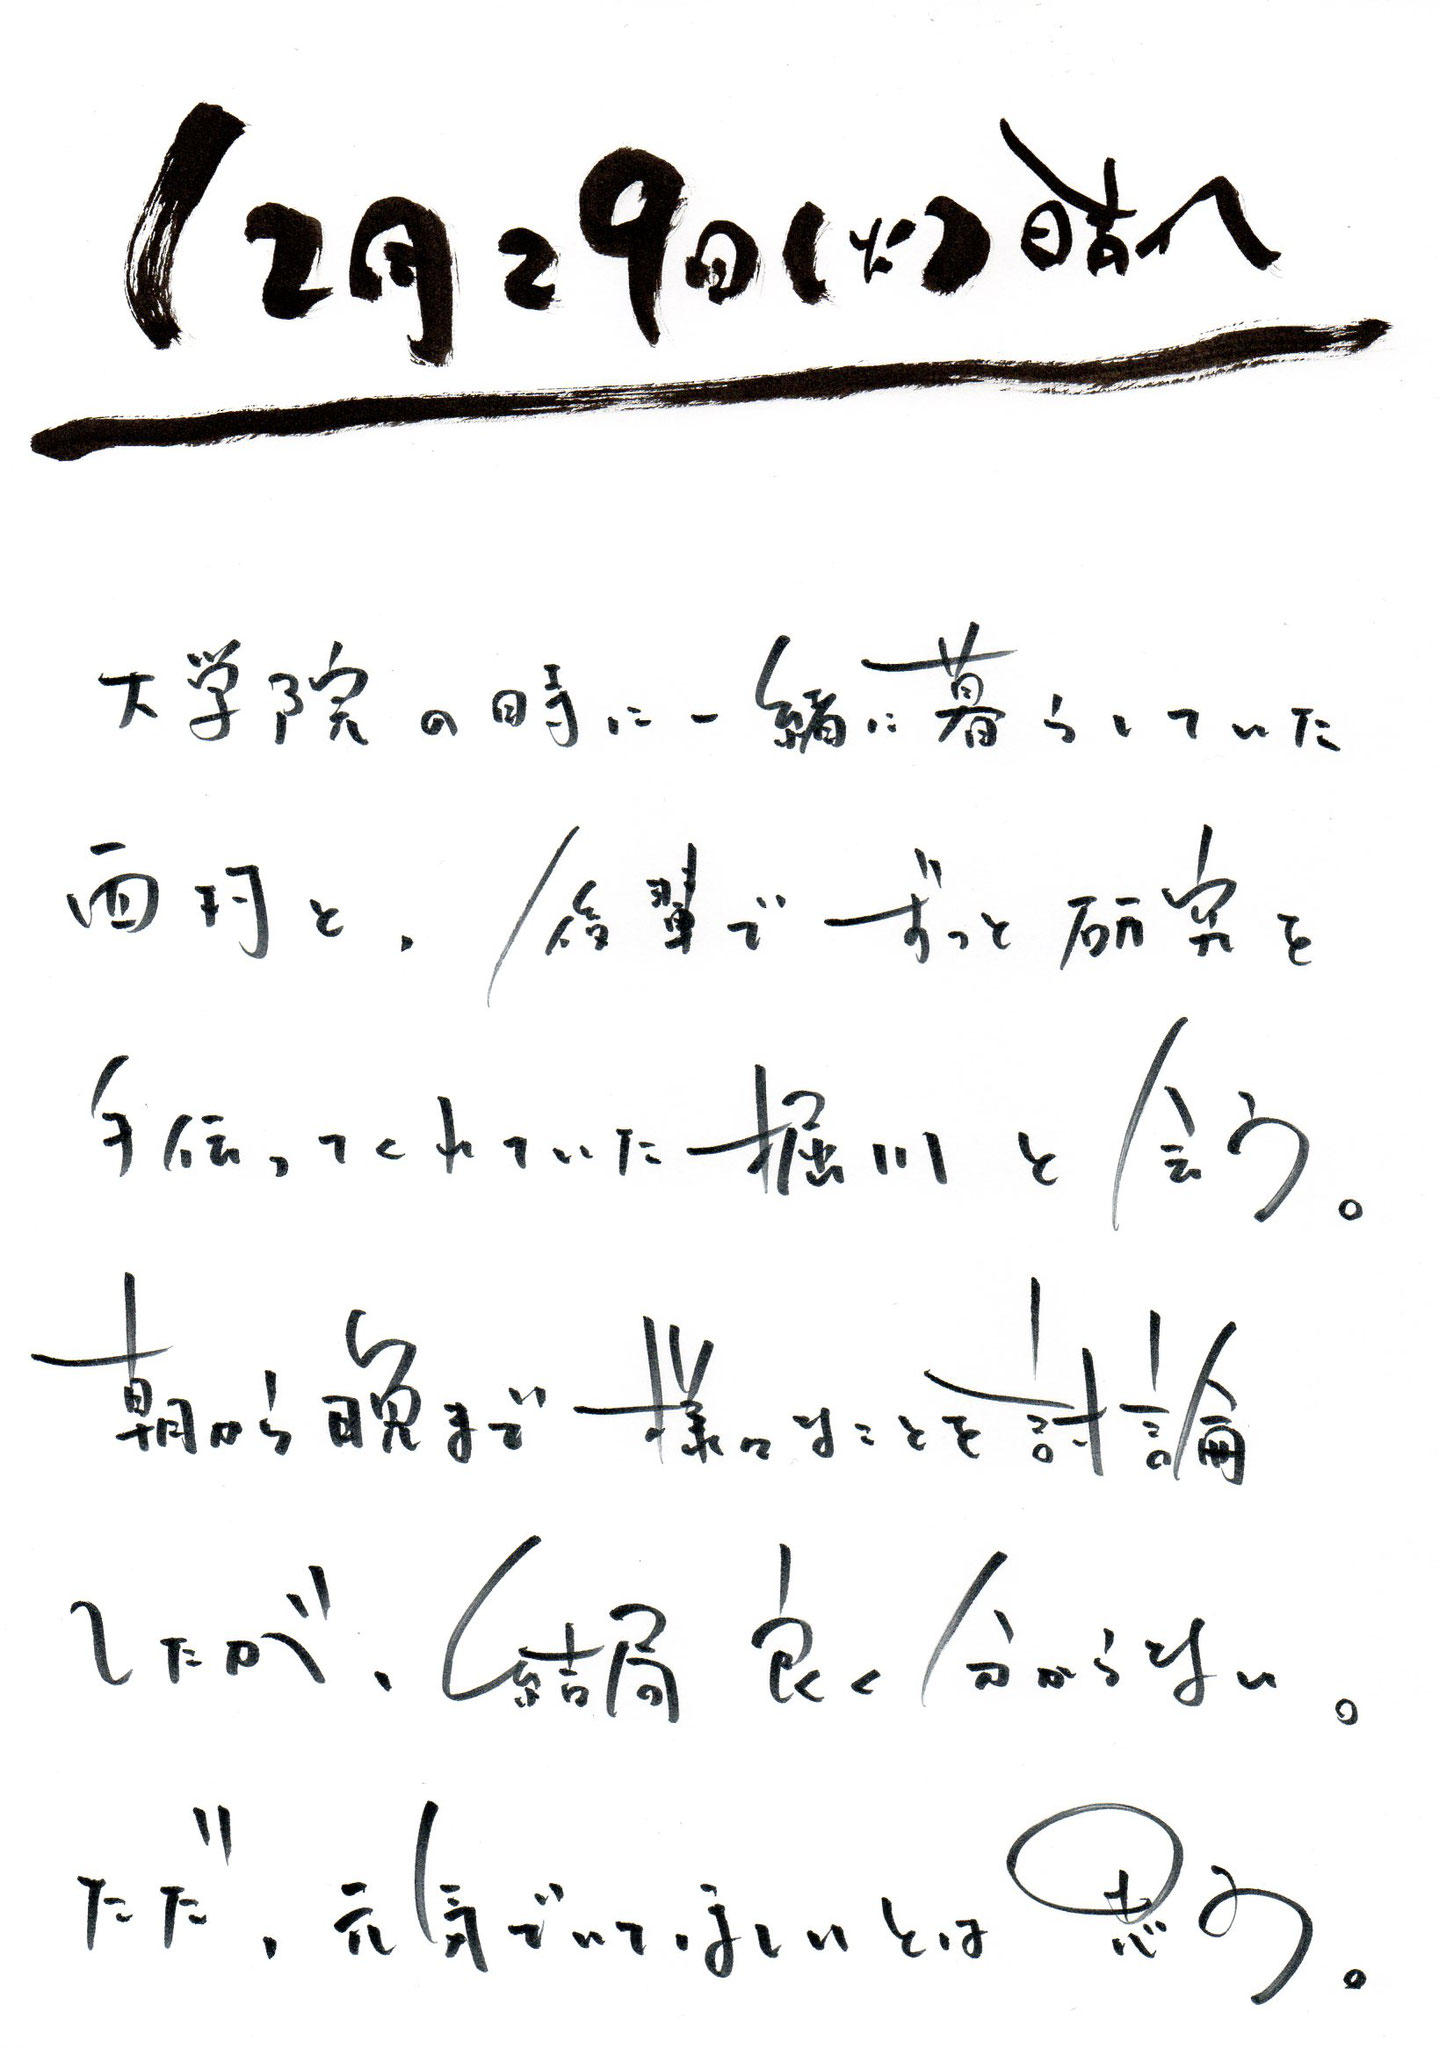 12月29日(火)晴れ
大学院の時に一緒に暮らしていた
西村と、後輩でずっと研究を
手伝ってくれていた堀川と会う。
朝から晩まで様々なことを討論
したが、結局良く分からない。
ただ、元気でいてほしいとは思う。